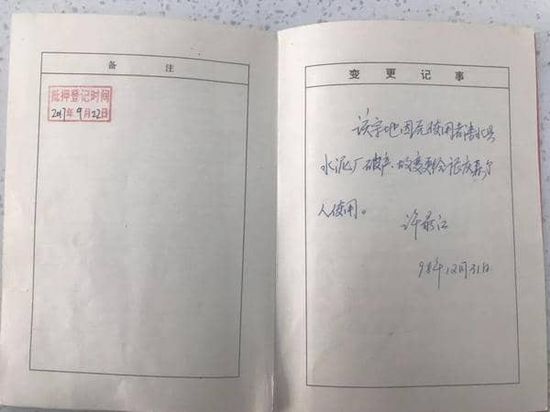 备 注
抵押登记时间
2017年9月22日
变更记事
该宗地因原使用者 县
水泥厂破产,故变更给
人使用。
许 江
98年12月31日